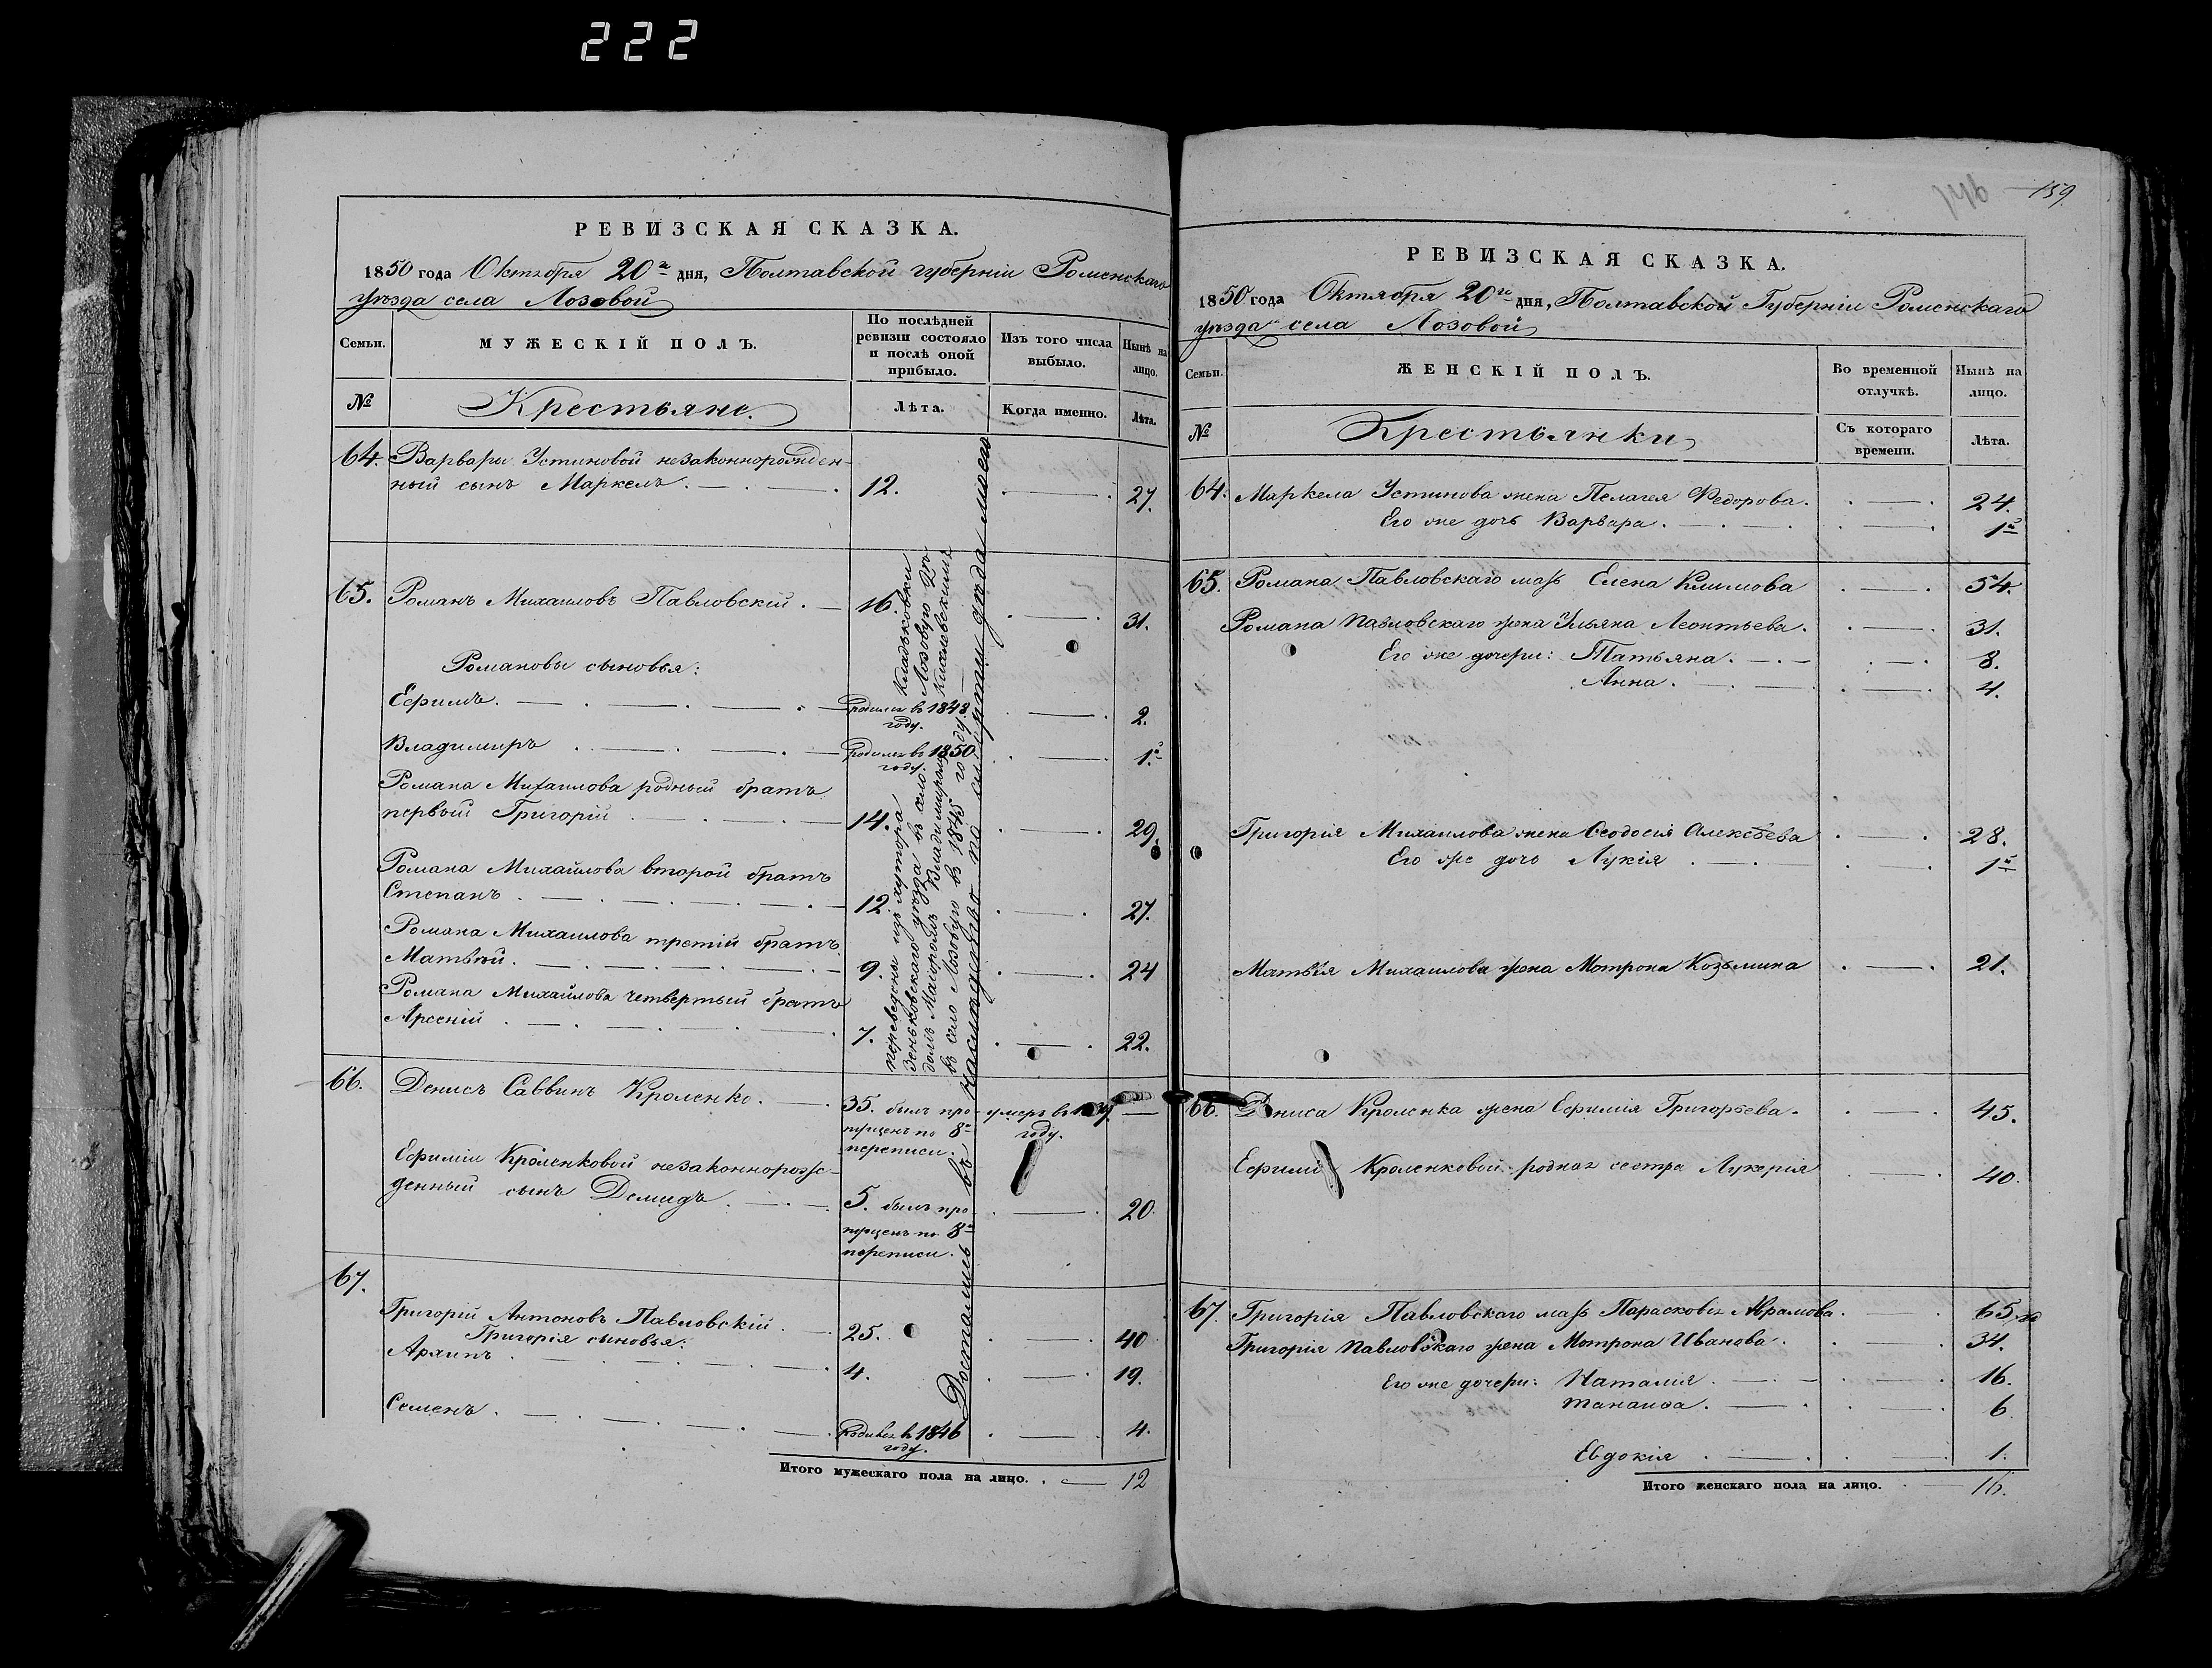 222
РЕВИЗСКАЯ СКАЗКА.
1850 года Октября 20го дня, Полтавской губерніи Роменскаго
уѣзда села Лозовой
Семьи.
МУЖЕСКІЙ ПОЛЪ.
По послѣдней
ревизіи состояло
и послѣ оной
прибыло.
Изъ того числа
выбыло.
Нынѣ на
лицо.
№
Крестьяне.
Лѣта.
Когда именно.
Лѣта.
64. Варвары Устиновой незаконнорожден-
ный сынъ Маркелъ. 12. 27.
65. Романъ Михаиловъ Павловскій. 16. 31.
Романовы сыновья:
Ефимъ. родился въ 1848 2.
году.
Владимиръ родился въ 1850 1/2
году.
Романа Михаилова родный братъ
первый Григорій 14. 29.
Романа Михайлова второй братъ
Степанъ. 12. 27.
Романа Михаилова третій братъ
Матвѣй. 9. 24
Романа Михайлова четвертый братъ
Арсеній 7. 22.
переведены изъ хутора
Зеньковскаго уѣзда въ село Лозовую
въ село Лозовую въ 1845 году.
Достались въ наслѣдство по смерти дѣда моего
66. Денисъ Саввинъ Кроленко. 35. былъ про- умеръ въ
пущенъ по 8й году.
переписи.
Ефиміи Кроленковой незаконнорож-
денный сынъ Демидъ 5. былъ про- 20.
пущенъ по 8й
переписи.
67.
Григорій Антоновъ Павловскій. 25. 40
Григорія сыновья:
Архипъ 4. 19.
Семенъ. Родился въ 1846 4.
году.
Итого мужескаго пола на лицо. 12
159
РЕВИЗСКАЯ СКАЗКА.
1850 года Октября 20го дня, Полтавской Губерніи Роменскаго
уѣзда села Лозовой
Семьи.
ЖЕНСКІЙ ПОЛЪ.
Во временной
отлучкѣ.
Нынѣ на
лицо.
№
Крестьянки
Съ котораго
времени.
Лѣта.
64. Маркела Устинова жена Пелагея Федорова. 24.
Его же дочь Варвара. 1/2
65. Романа Павловскаго мать Елена Климова 54.
Романа Павловскаго жена Ульяна Леонтьева. 31.
Его же дочери: Татьяна. 8.
Анна. 4.
Григорія Михаилова жена Феодосія Алексѣева 28.
Его же дочь Лукія 1/2
Матвѣя Михаилова жена Мотрона Козьмина 21.
66. Дениса Кроленка жена Ефимія Григорьева. 45.
Ефиміи Кроленковой родная сестра Лукерія 40.
67. Григорія Павловскаго мать Парасковья Абрамова. 65.
Григорія Павловскаго жена Мотрона Иванова. 34.
Его же дочери: Наталія. 16.
6
Евдокія 1.
Итого женскаго пола на лицо. 16.